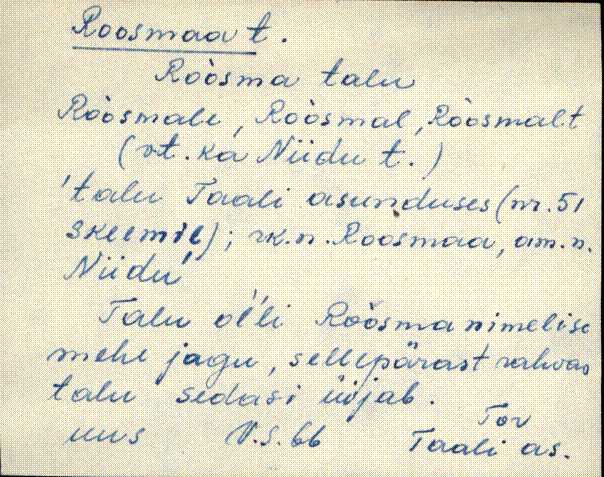 Roosmaa t.
Roòsma talu
Roòsmale, Roòsmal, Roòsmalt
(vt. ka Niidu t.)
'talu Taali asunduses (nr. 51
skeemil); rk.n. Roosmaa, am.n.
Niidu'
Talu oĺli Roòsma nimelise
mehe jagu, sellepärast rahvas
talu sedasi üijab.
Tor
uus V.S.66 Taali as.